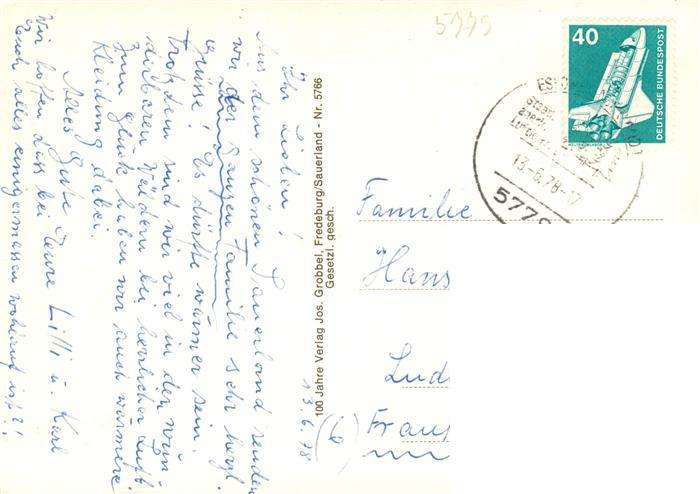 Ihr Lieben!
Aus dem schönen Sauerland senden
wir der ganzen Familie sehr herzl.
Grüsse! Es dürfte wärmer sein.
Trotzdem sind wir viel in den wun-
derbaren Wäldern bei herrlicher Luft.
Zum Glück haben wir auch wärmere
Kleidung dabei.
Alles Gute Eure Lilli u. Karl
Wir hoffen dass bei
Euch alles einigermassen wohlauf ist?!
100 Jahre Verlag Jos. Grobbel, Fredeburg/Sauerland - Nr. 5766
Gesetzl. gesch.
13.6.78
5779
40
DEUTSCHE BUNDESPOST
13.-6.78-17
5779
Familie
Hans
Lud
(6) Fran